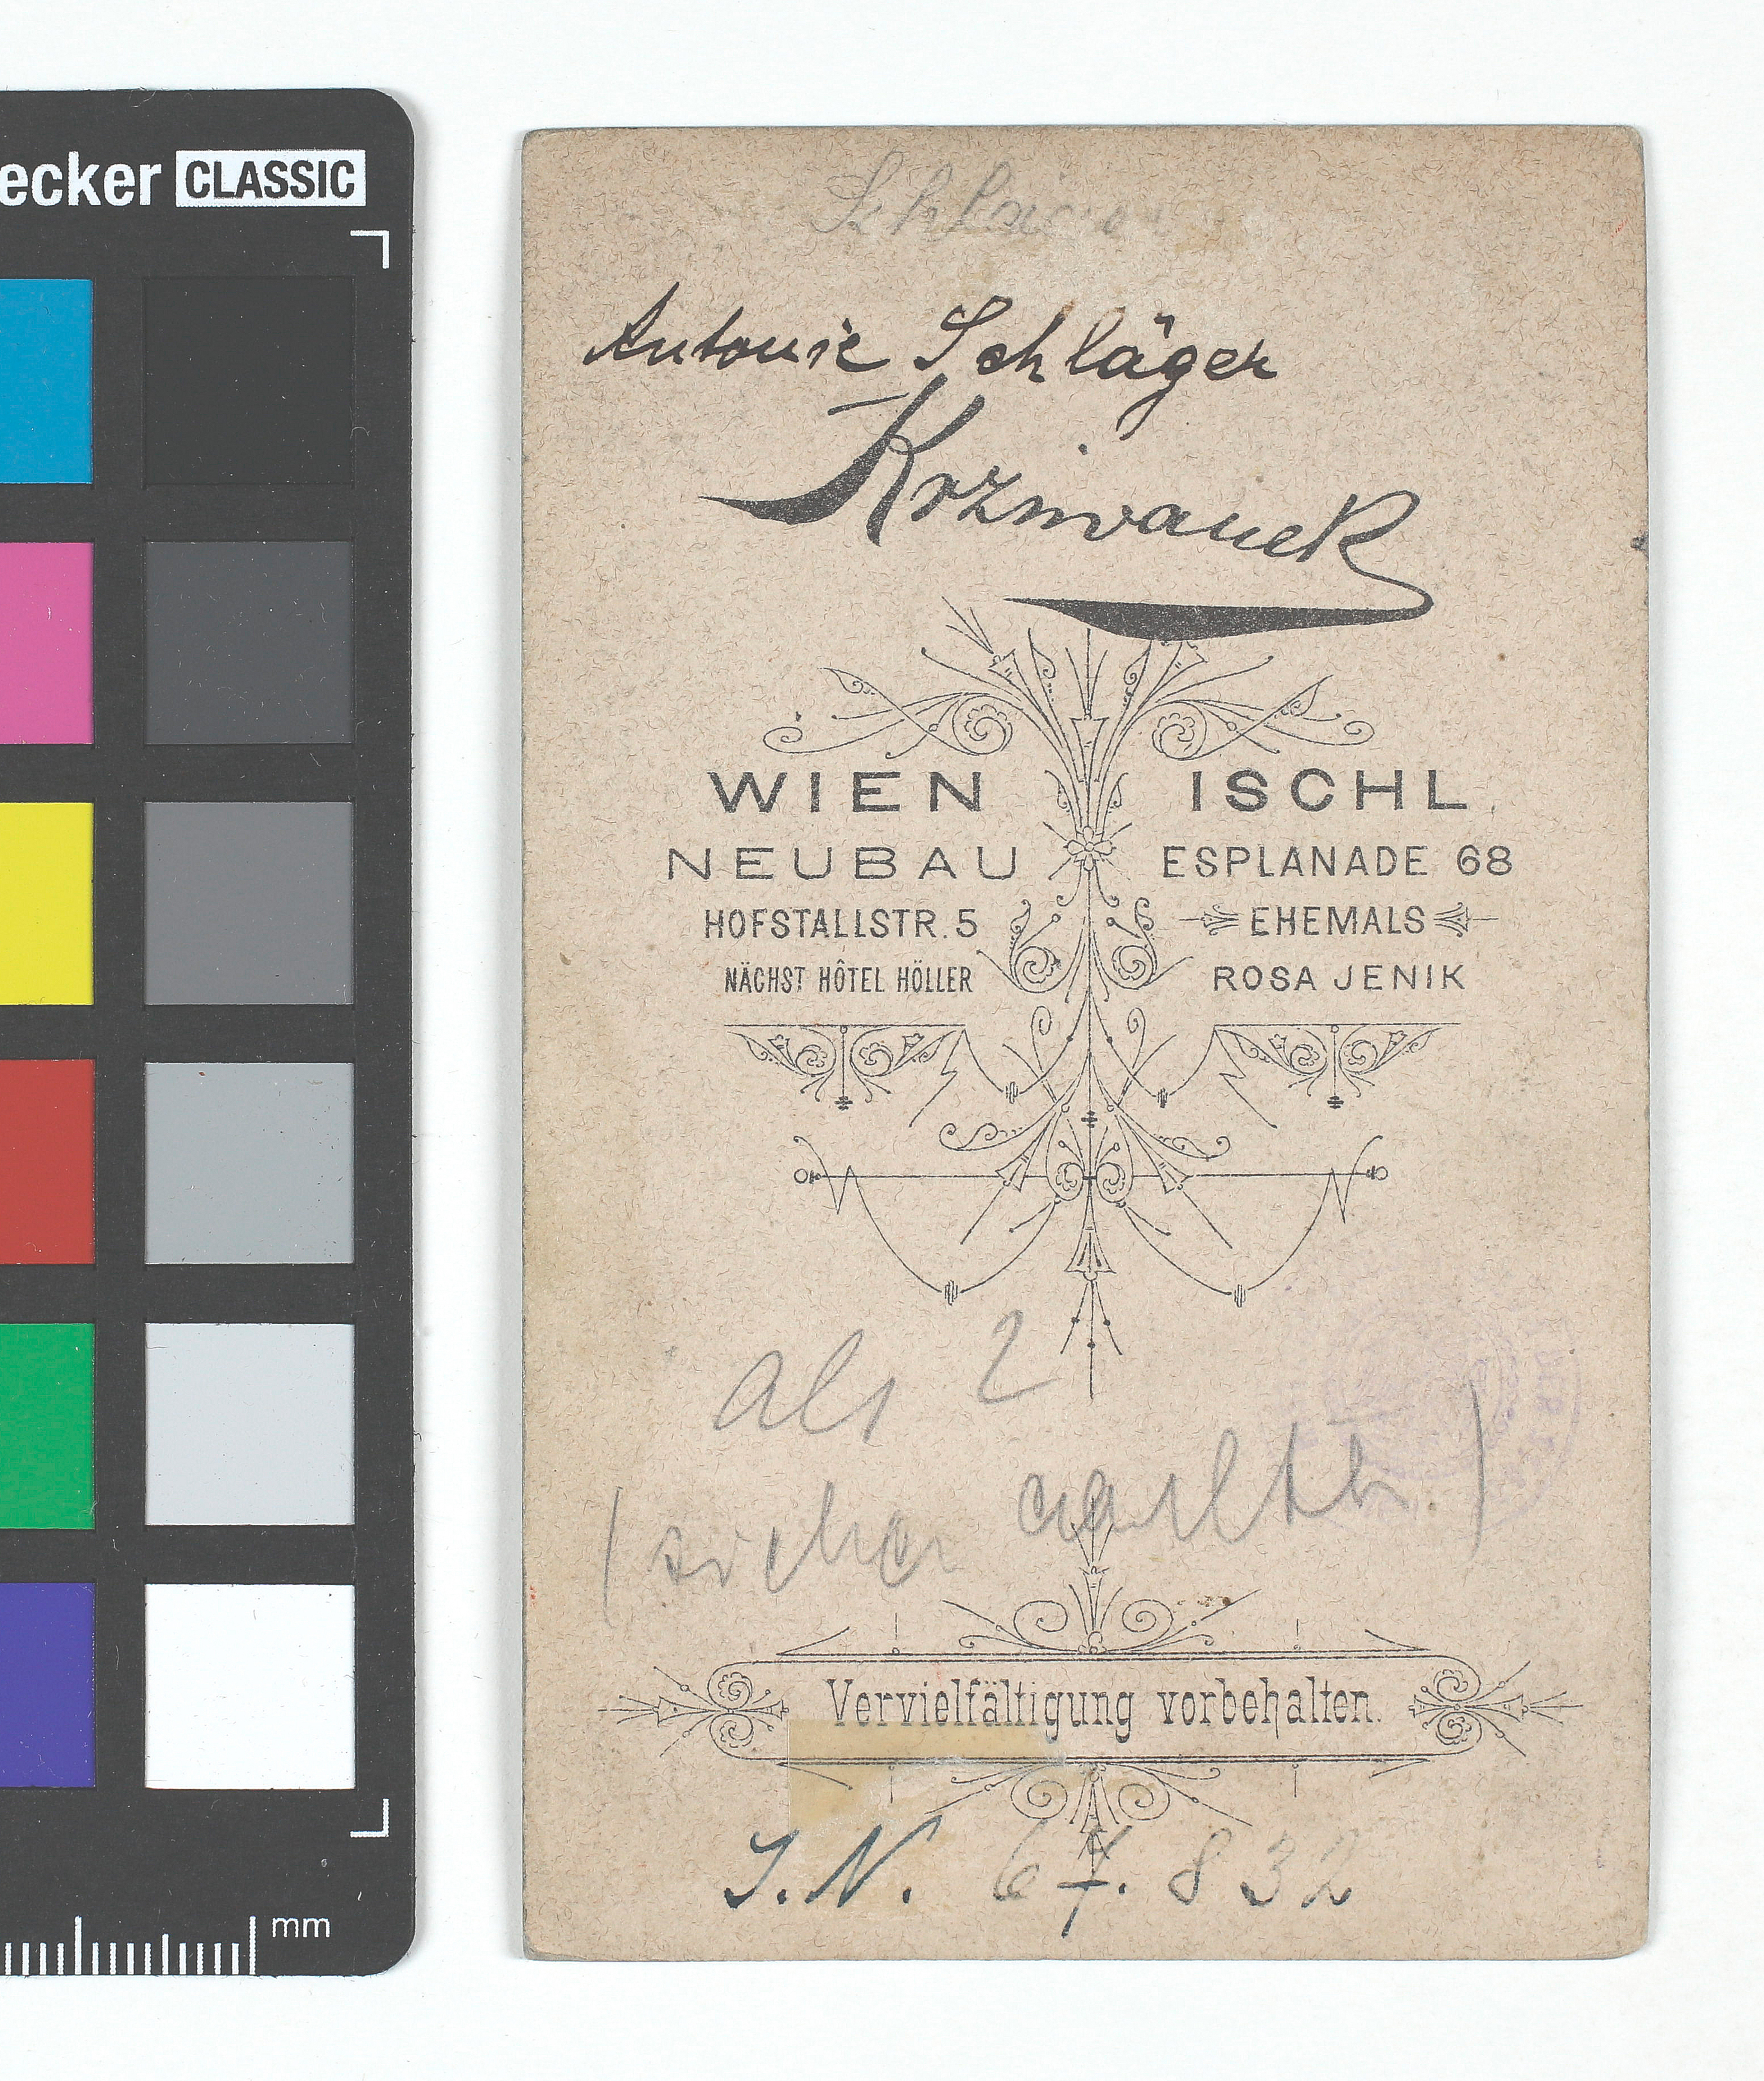 ecker CLASSIC
Antonie Schläger
Krziwanek
WIEN
NEUBAU
HOFSTALLSTR. 5
NÄCHST HÔTEL HÖLLER
ISCHL
ESPLANADE 68
EHEMALS
ROSA JENIK
als ?
Vervielfältigung vorbehalten.
I.N. 67.832
mm